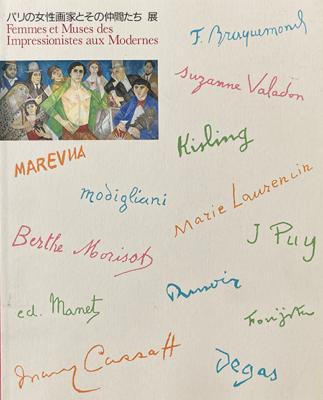 パリの女性画家とその仲間たち 展
Femmes et Muses des
Impressionistes aux Modernes
F. Bracquemond
Suzanne Valadon
Kisling
MAREVNA
modigliani
Marie Laurencin
Berthe Morisot
J Puy
Renoir
ed. Manet
Foujita
Mary Cassatt
Degas